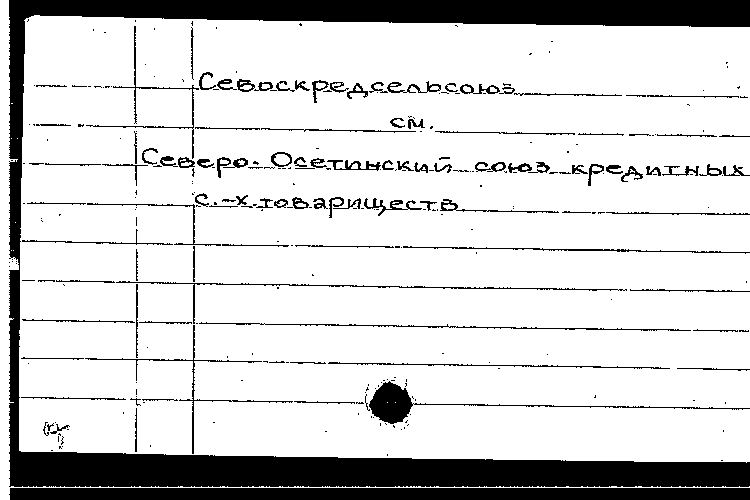 Севоскредсельсоюз
см.
Северо-Осетинский союз кредитных
с.-х. товариществ